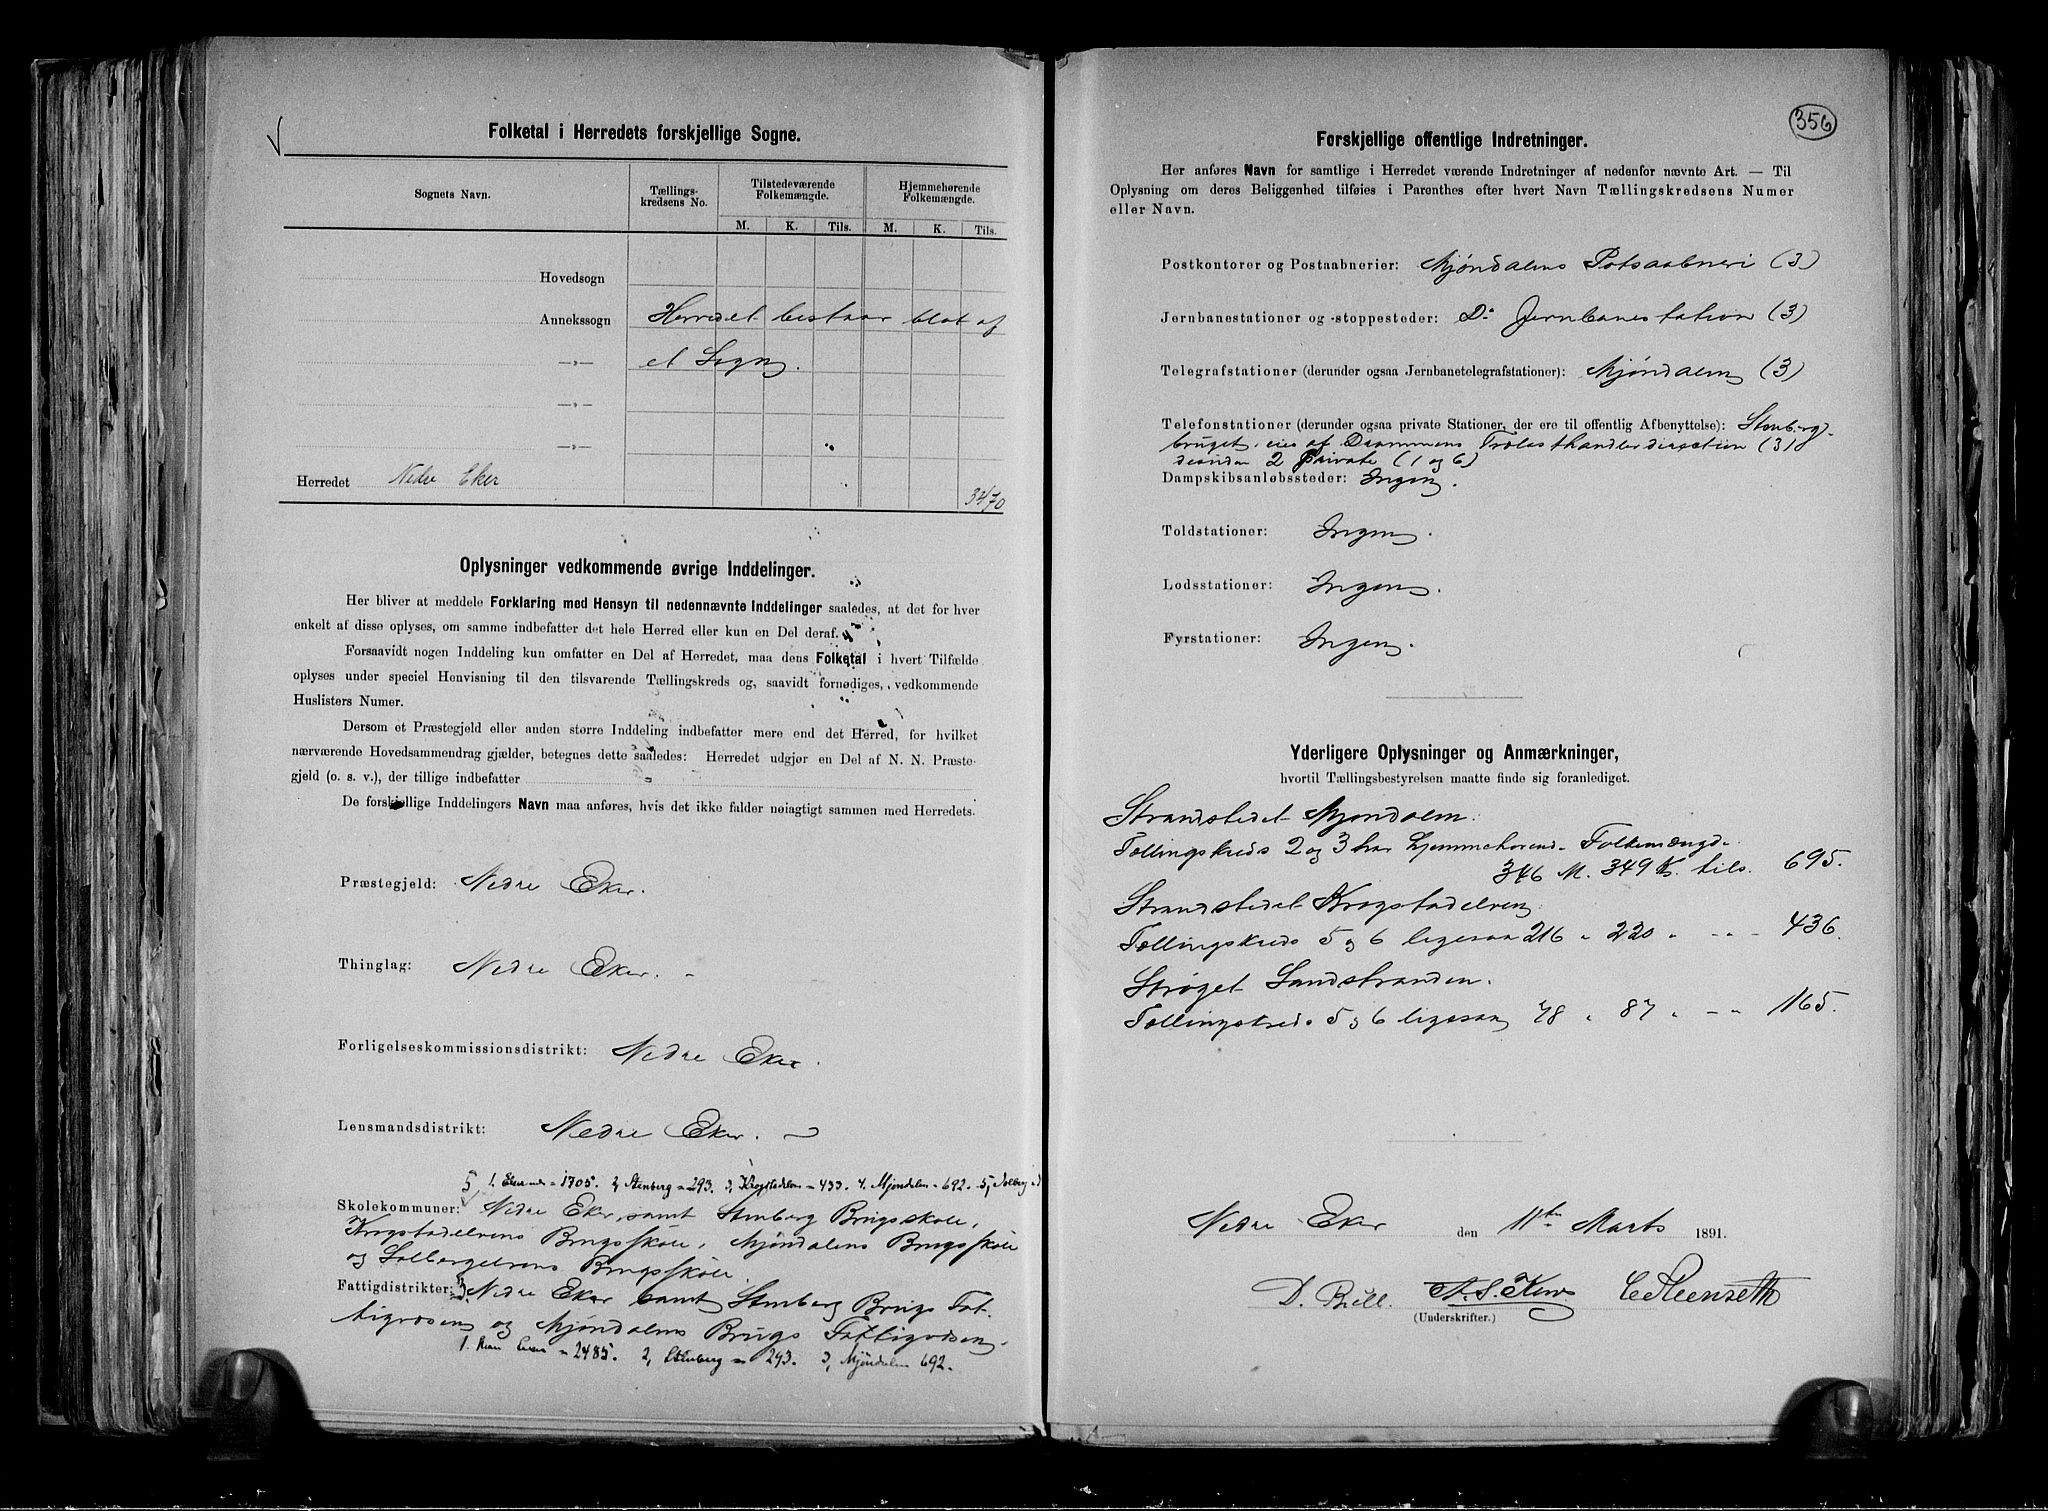 Folketal i Herredets forskjellige Sogne.
Sognets Navn.
Tællings-
kredsens No.
Tilstedeværende
Folkemængde.
Hjemmehørende
Folkemængde.
M. K. Tils. M. K. Tils.
Hovedsogn
Annekssogn Herredet bestaar blot af
—»— et Sogn.
—»—
—»—
Herredet Nedre Eker 3470
Oplysninger vedkommende øvrige Inddelinger.
Her bliver at meddele Forklaring med Hensyn til nedennævnte Inddelinger saaledes, at det for hver
enkelt af disse oplyses, om samme indbefatter det hele Herred eller kun en Del deraf.
Forsaavidt nogen Inddeling kun omfatter en Del af Herredet, maa dens Folketal i hvert Tilfælde
oplyses under speciel Henvisning til den tilsvarende Tællingskreds og, saavidt fornødiges, vedkommende
Huslisters Numer.
Dersom et Præstegjeld eller anden større Inddeling indbefatter mere end det Herred, for hvilket
nærværende Hovedsammendrag gjælder, betegnes dette saaledes: Herredet udgjør en Del af N. N. Præste-
gjeld (o. s. v.), der tillige indbefatter
De forskjellige Inddelingers Navn maa anføres, hvis det ikke falder nøiagtigt sammen med Herredets.
Præstegjeld: Nedre Eker.
Thinglag: Nedre Eker.
Forligelseskommissionsdistrikt: Nedre Eker.
Lensmandsdistrikt: Nedre Eker.
5 1. = 1705. 2, Stenberg = 293. 3, Krogstadelven = 433. 4. Mjøndalen = 692. 5, Solberg
Skolekommuner: Nedre Eker samt Stenberg Brugsskole,
Krogstadelvens Brugsskole, Mjøndalens Brugsskole
og Solbergelvens Brugsskole.
Fattigdistrikter: 3. Nedre Eker samt Stenberg Brugs Fat-
tigvæsen og Mjøndalens Brugs Fattigvæsen.
1. = 2485. 2, Stenberg = 293. 3, Mjöndalen 692.
356
Forskjellige offentlige Indretninger.
Her anføres Navn for samtlige i Herredet værende Indretninger af nedenfor nævnte Art. — Til
Oplysning om deres Beliggenhed tilføies i Parenthes efter hvert Navn Tællingskredsens Numer
eller Navn.
Postkontorer og Postaabnerier: Mjöndalens Potsaabneri (3)
Jernbanestationer og -stoppesteder: Do Jernbanestation (3)
Telegrafstationer (derunder ogsaa Jernbanetelegrafstationer): Mjöndalen (3)
Telefonstationer (derunder ogsaa private Stationer, der ere til offentlig Afbenyttelse): Stenberg-
bruget, eies af Drammens Trælasthandlerdirection (3)
desuden 2 private (1 og 6)
Dampskibsanløbssteder: Ingen.
Toldstationer: Ingen.
Lodsstationer: Ingen.
Fyrstationer: Ingen.
Yderligere Oplysninger og Anmærkninger,
hvortil Tællingsbestyrelsen maatte finde sig foranlediget.
Strandstedet Mjøndalen.
Tællingskreds 2 og 3 har hjemmehørende Folkemængde
346 M. 349 K. tils. 695.
Strandstedet Krogstadelven
Tællingskreds 5 og 6 ligesaa 216 " 220 " " - 436.
Strøget Sandstranden.
Tællingskreds 5 og 6 ligesaa 78 " 87 " - " 165.
Nedre Eker den 11te Marts 1891.
(Underskrifter.)